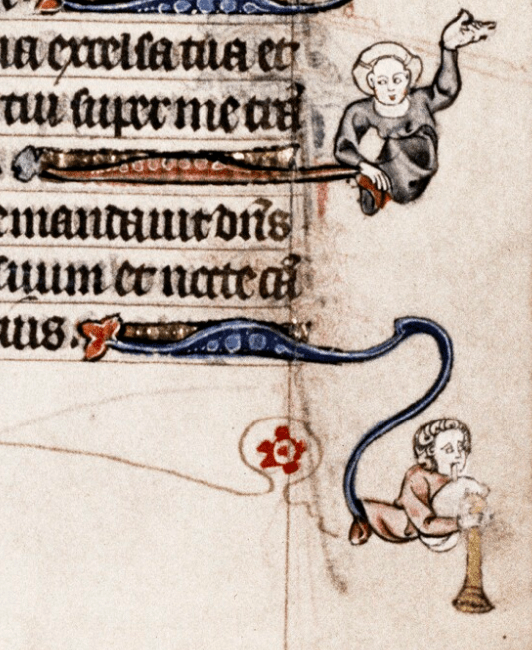 ia excelsa tua et
tui super me trā
emandauit dn̄s
suum et nocte cā
ius.